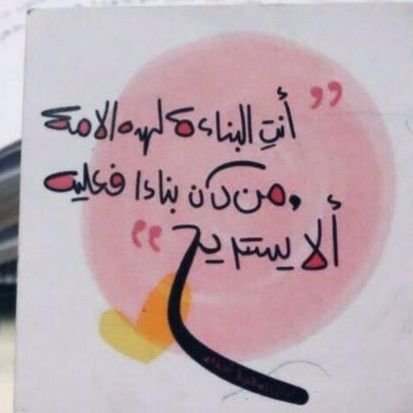 " أنتِ البناءة لهذه الأمة
ومن كان بناءا فعليه
ألا يستريح "